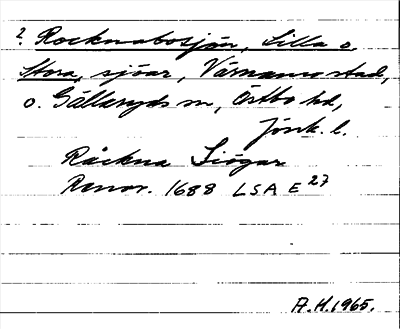 2. Rocknabosjön, Lilla o.
Stora, sjöar, Värnamo stad,
o. Gällaryds sn, Östbo hd,
Jönk. l.
Råckna Siögar
Renov. 1688 LSA E 27
A.H. 1965.